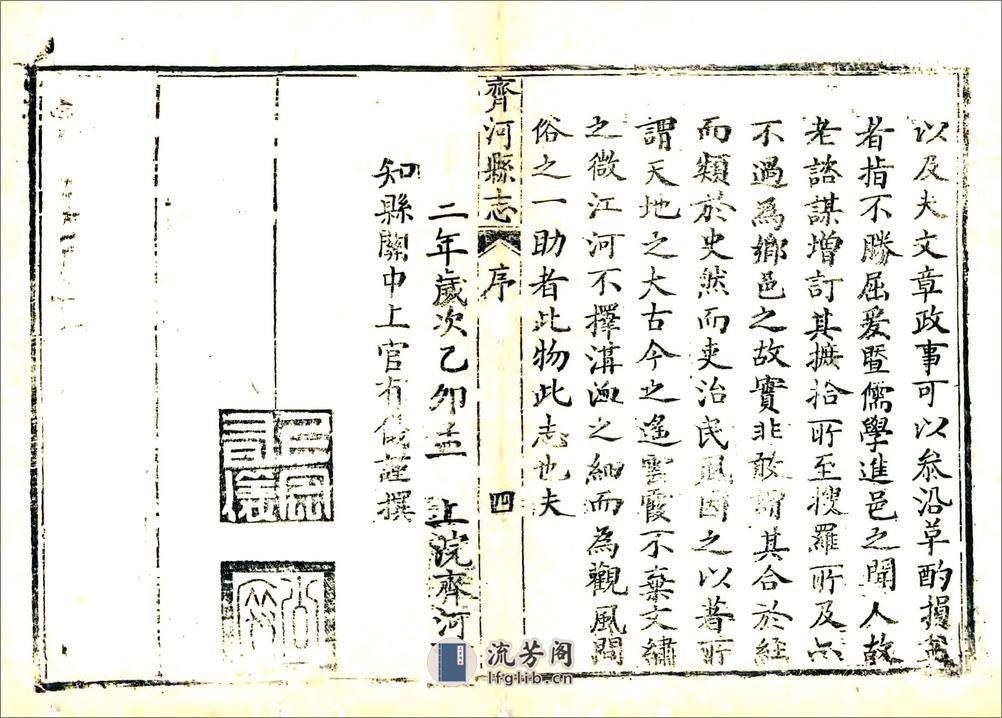 以及夫文章政事可以叅沿革酌損益
者指不勝屈爰曁儒學進邑之聞人故
老諮謀增訂其摭拾所至搜羅所及亦
不過為鄉邑之故實非敢謂其合於經
而類於史然而吏治民風因之以著所
謂天地之大古今之遙雲霞不棄文繡
之微江河不擇溝洫之細而為觀風問
俗之一助者此物此志也夫
齊河縣志
序
四
二年歲次乙卯孟 上浣齊河
知縣關中上官有儀謹撰
上官
有儀
流芳阁
lfglib.cn